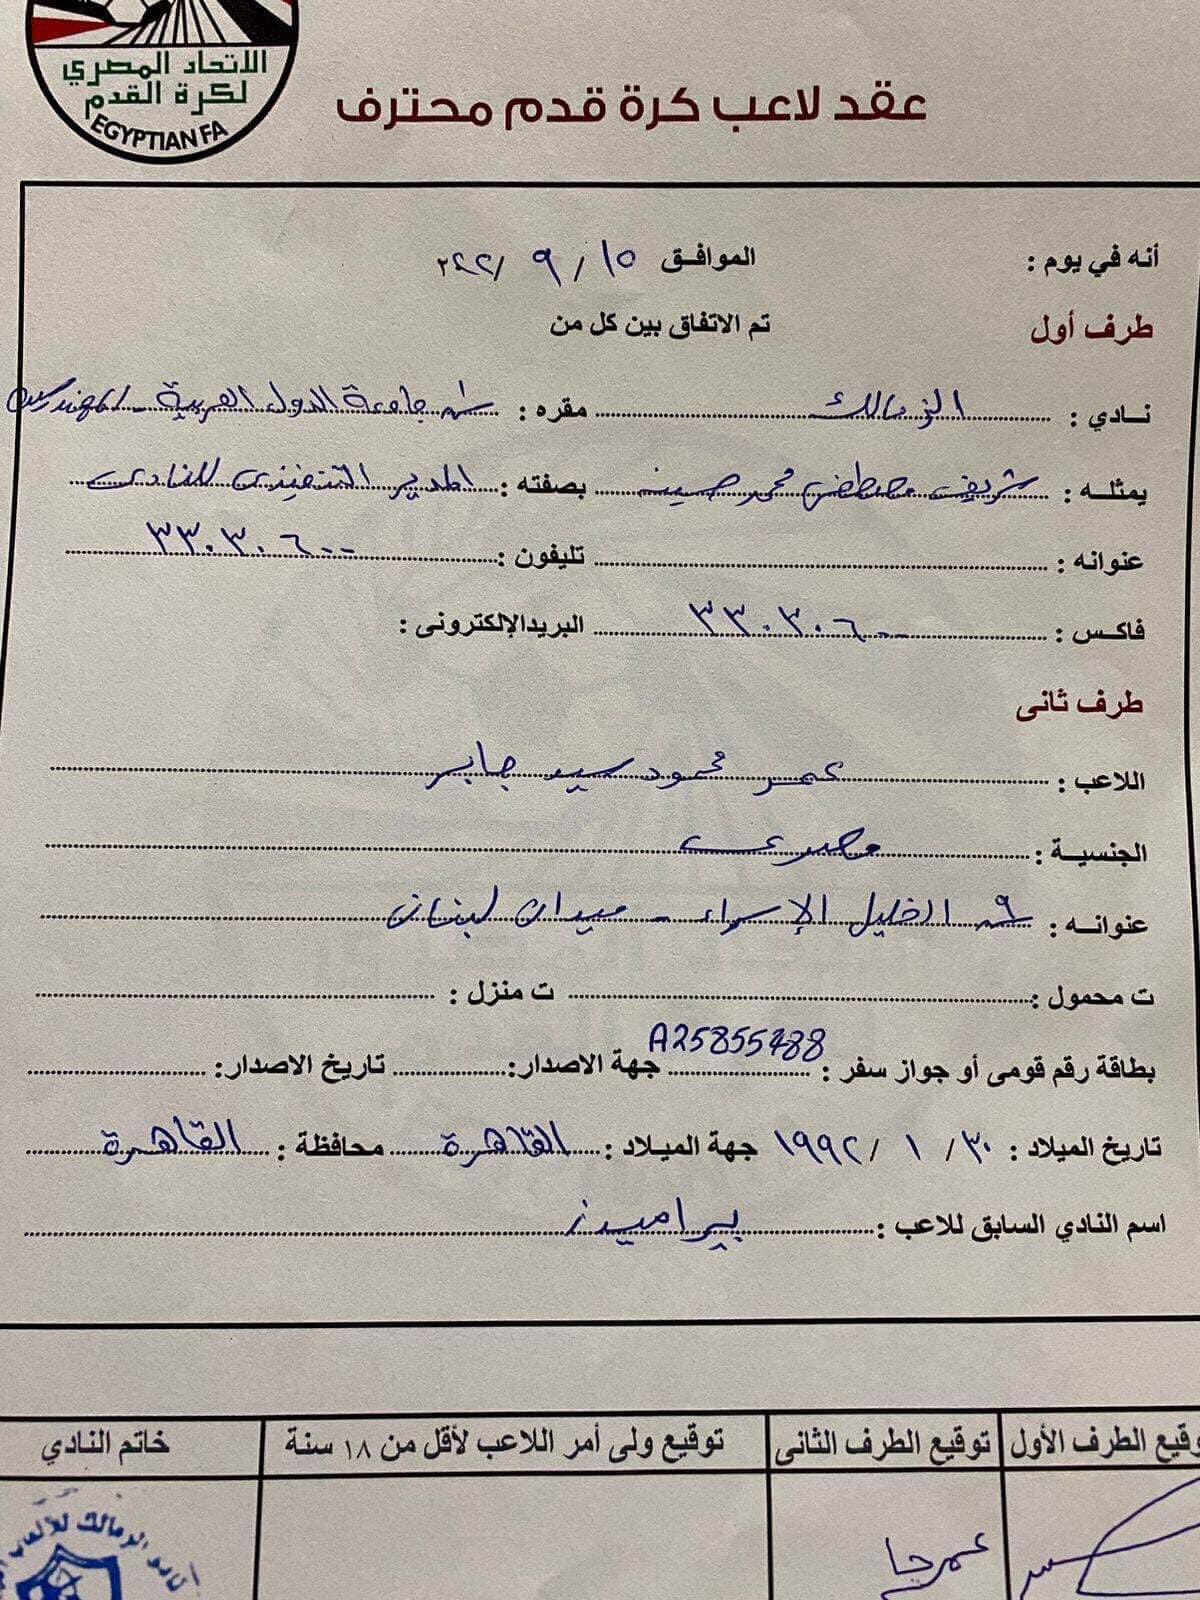 الاتحاد المصري
لكرة القدم
EGYPTIAN FA
عقد لاعب كرة قدم محترف
أنه في يوم : الموافق ١٥ / ٩ / ٢٠٢٢
طرف أول تم الاتفاق بين كل من
نادي : الزمالك مقره : ش جامعة الدول العربية - المهندسين
يمثله : شريف مصطفى محمد حسين بصفته : المدير التنفيذى للنادى
عنوانه : تليفون : ٣٣٠٣٠٦٠٠
فاكس : ٣٣٠٣٠٦٠٠ البريد الإلكترونى :
طرف ثانى
اللاعب : عمر محمود سيد جابر
الجنسية : مصرى
عنوانه : ٩ ش الخليل الإسراء - ميدان لبنان
ت محمول : ت منزل :
بطاقة رقم قومى أو جواز سفر : جهة الاصدار: تاريخ الاصدار:
تاريخ الميلاد : ٣٠ / ١ / ١٩٩٢ جهة الميلاد : القاهرة محافظة : القاهرة
اسم النادي السابق للاعب : بيراميدز
توقيع الطرف الأول توقيع الطرف الثانى توقيع ولى أمر اللاعب لأقل من ١٨ سنة خاتم النادي
عمر جا
نادى الزمالك للألعاب